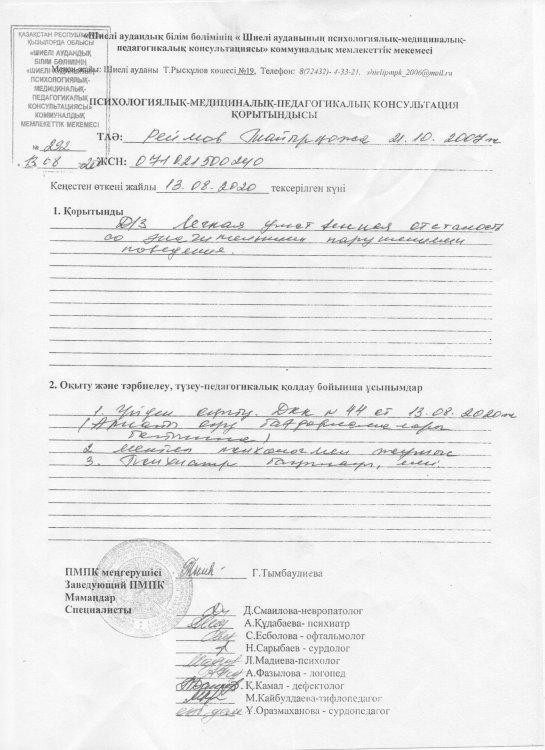 ҚАЗАҚСТАН РЕСПУБЛИКАСЫ
ҚЫЗЫЛОРДА ОБЛЫСЫ
«ШИЕЛІ АУДАНДЫҚ
БІЛІМ БӨЛІМІНІҢ
«ШИЕЛІ АУДАНЫНЫҢ
ПСИХОЛОГИЯЛЫҚ-
МЕДИЦИНАЛЫҚ-
ПЕДАГОГИКАЛЫҚ
КОНСУЛЬТАЦИЯСЫ»
КОММУНАЛДЫҚ
МЕМЛЕКЕТТІК МЕКЕМЕСІ
№ 292
13 08 20
«Шиелі аудандық білім бөлімінің « Шиелі ауданының психологиялық-медициналық-
педагогикалық консультациясы» коммуналдық мемлекеттік мекемесі
Мекен-жайы: Шиелі ауданы Т.Рысқұлов көшесі №19, Телефон: 8(72432)- 4-33-21. shielipmpk_2006@mail.ru
ПСИХОЛОГИЯЛЫҚ-МЕДИЦИНАЛЫҚ-ПЕДАГОГИКАЛЫҚ КОНСУЛЬТАЦИЯ
ҚОРЫТЫНДЫСЫ
ТАӘ: Реймов 21.10.2007ж
ЖСН: 071021500240
Кеңестен өткені жайлы 13.08.2020 тексерілген күні
1. Қорытынды
Д/З Легкая умственная отсталость
со значительными нарушениями
поведения.
2. Оқыту және тәрбиелеу, түзеу-педагогикалық қолдау бойынша ұсынымдар
1. Үйден оқыту. Дкк N 44 от 13.08.2020ж
(Арнайы оқу бағдарламалары
бойынша)
2 жұмыс
3. Психиатр бақылауы, емі.
ПМПК меңгерушісі Г.Тымбаулиева
Заведующий ПМПК
Мамандар
Специалисты Д.Смаилова-невропатолог
А.Құдабаева- психиатр
С.Есболова - офтальмолог
Н.Сарыбаев - сурдолог
Л.Мадиева-психолог
А.Фазылова - логопед
Қ.Камал - дефектолог
М.Кайбулдаева-тифлопедагог
Ұ.Оразмаханова - сурдопедагог